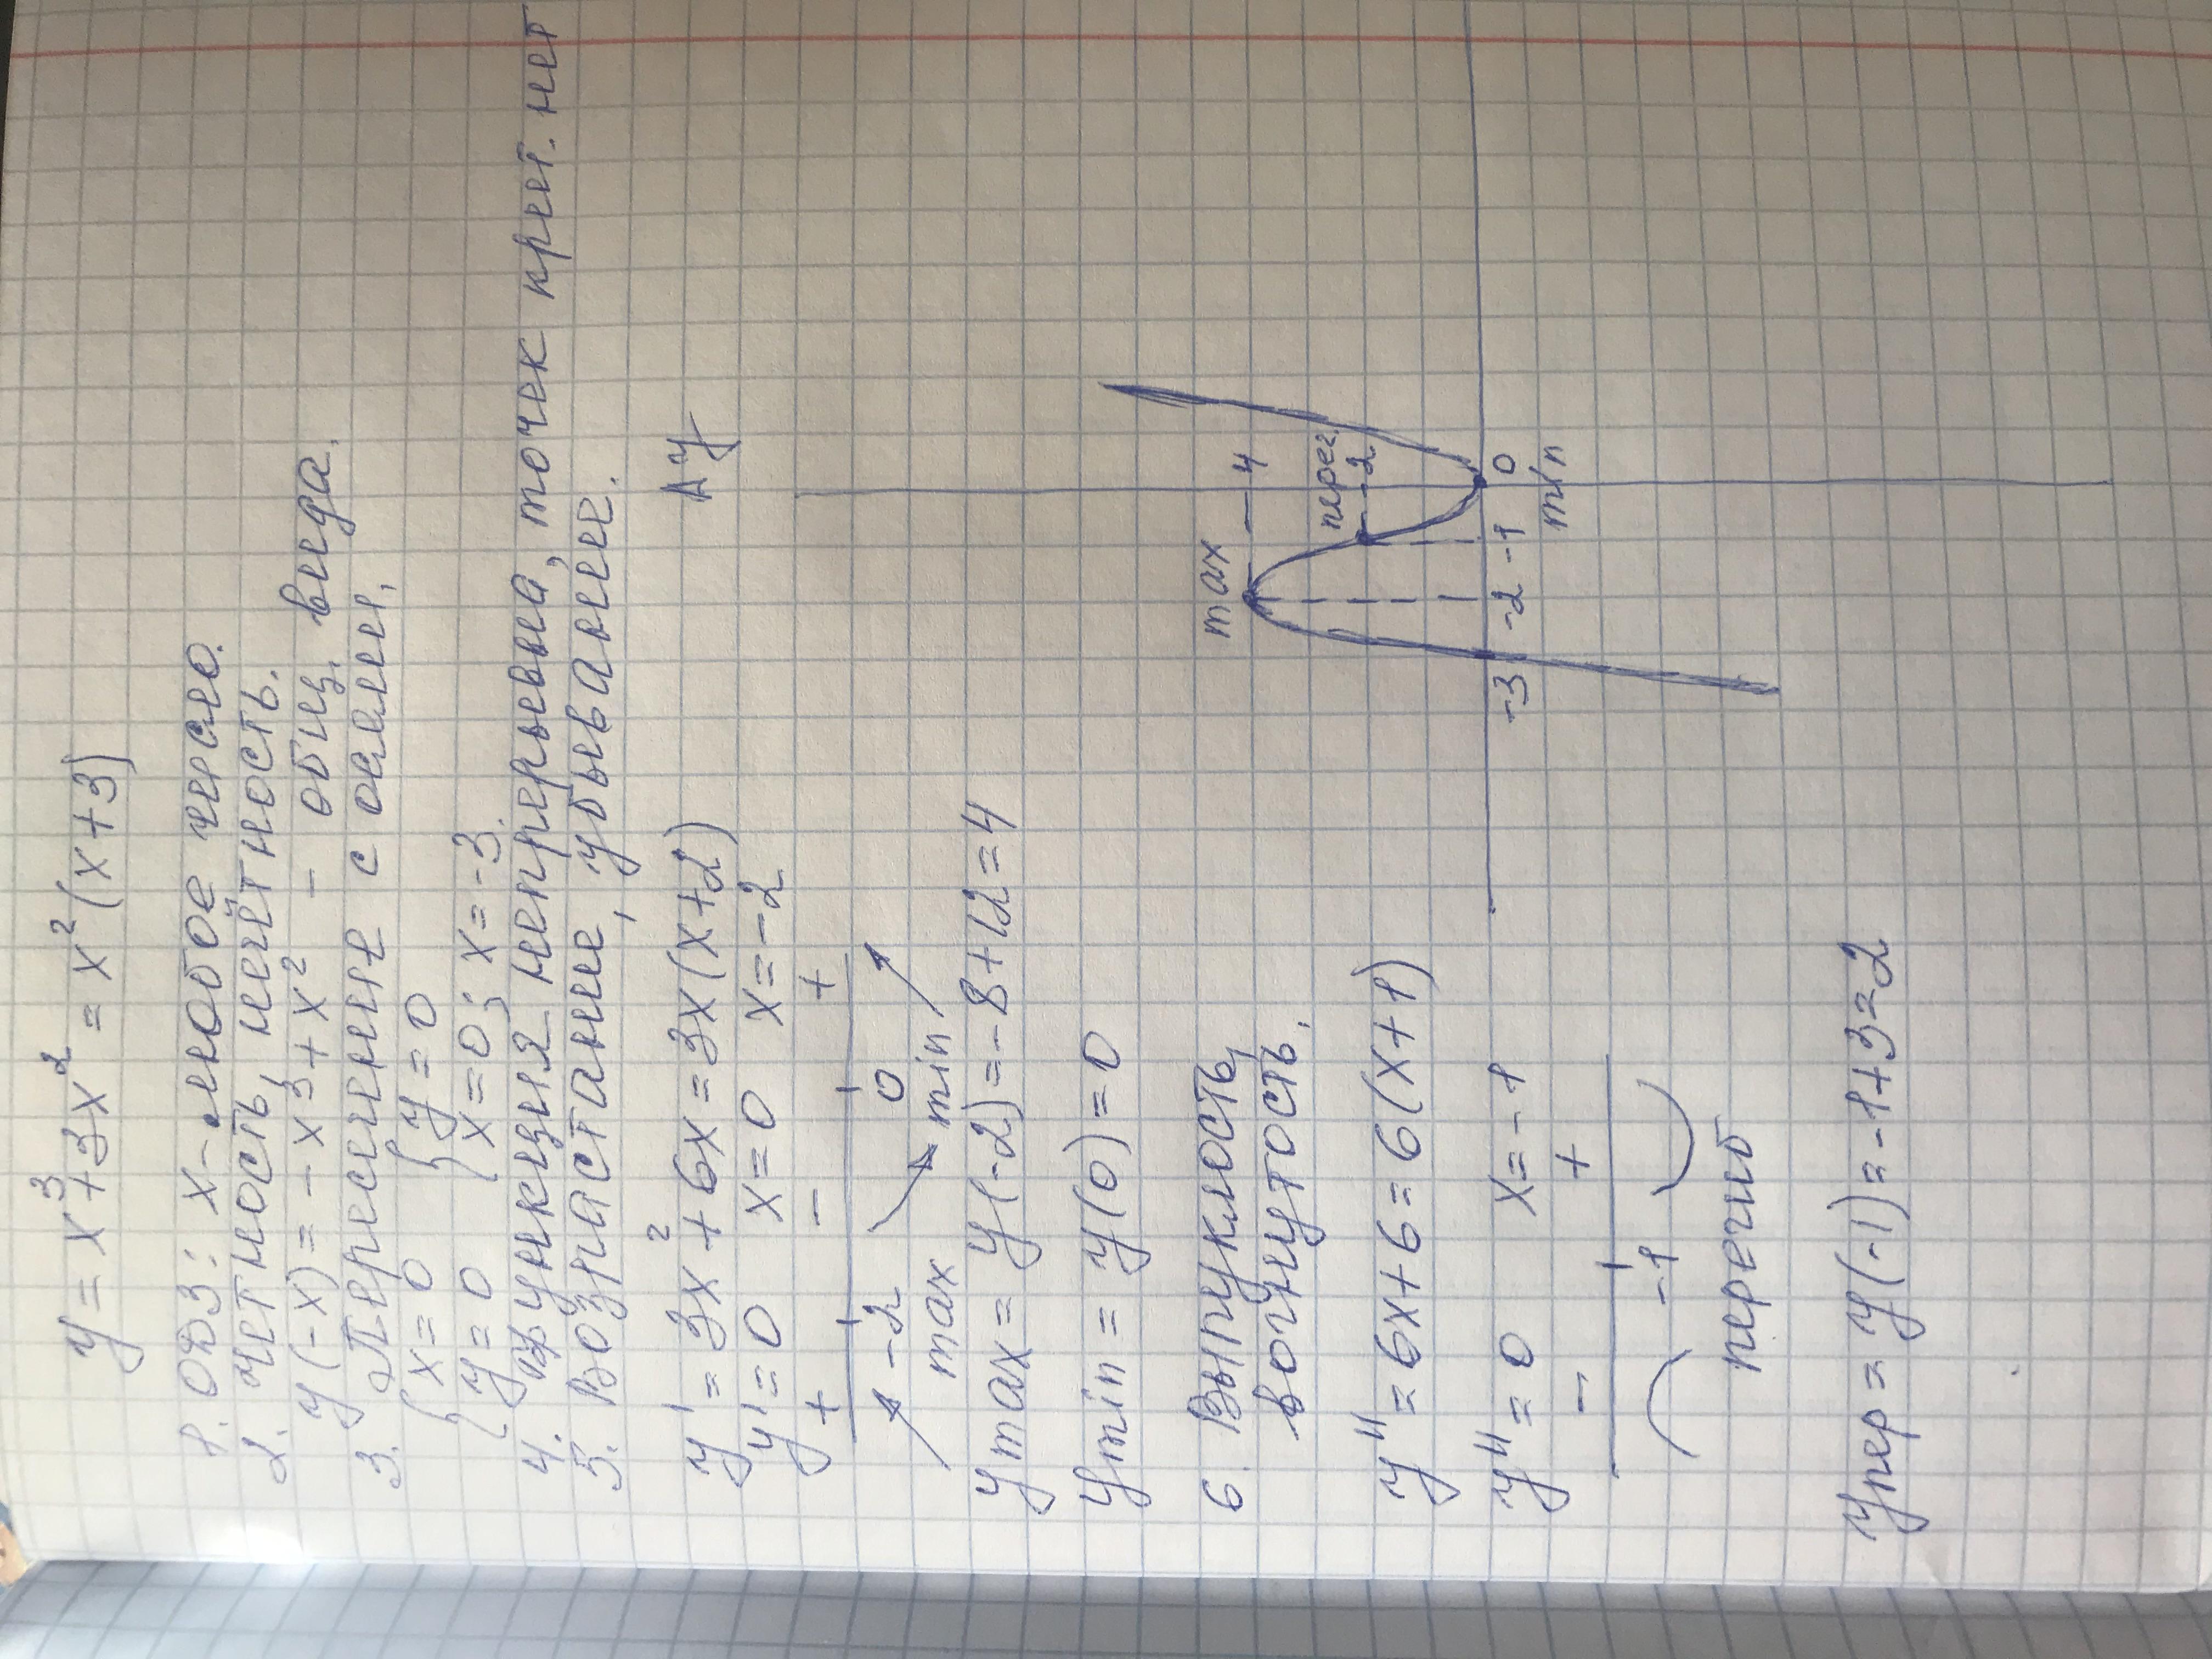 y = x³ + 3x² = x²(x+3)
1. ОДЗ: x - любое число.
2. Четность, нечётность.
y(-x) = -x³ + x² - общ. вида.
3. Пересечение с осями.
{ x = 0 { y = 0
{ y = 0 x = 0; x = -3.
4. Функция непрерывна, точек крит. нет
5. Возрастание, убывание.
y' = 3x² + 6x = 3x(x+2)
y' = 0 x = 0 x = -2
+ - +
-2 0
max min
y max = y(-2) = -8+12 = 4
y min = y(0) = 0
6. Выпуклость,
вогнутость.
y'' = 6x+6 = 6(x+1)
y'' = 0 x = -1
- +
-1
перегиб
y пер = y(-1) = -1+3 = 2
y
max 4
перег.
2
-3 -2 -1 0
min